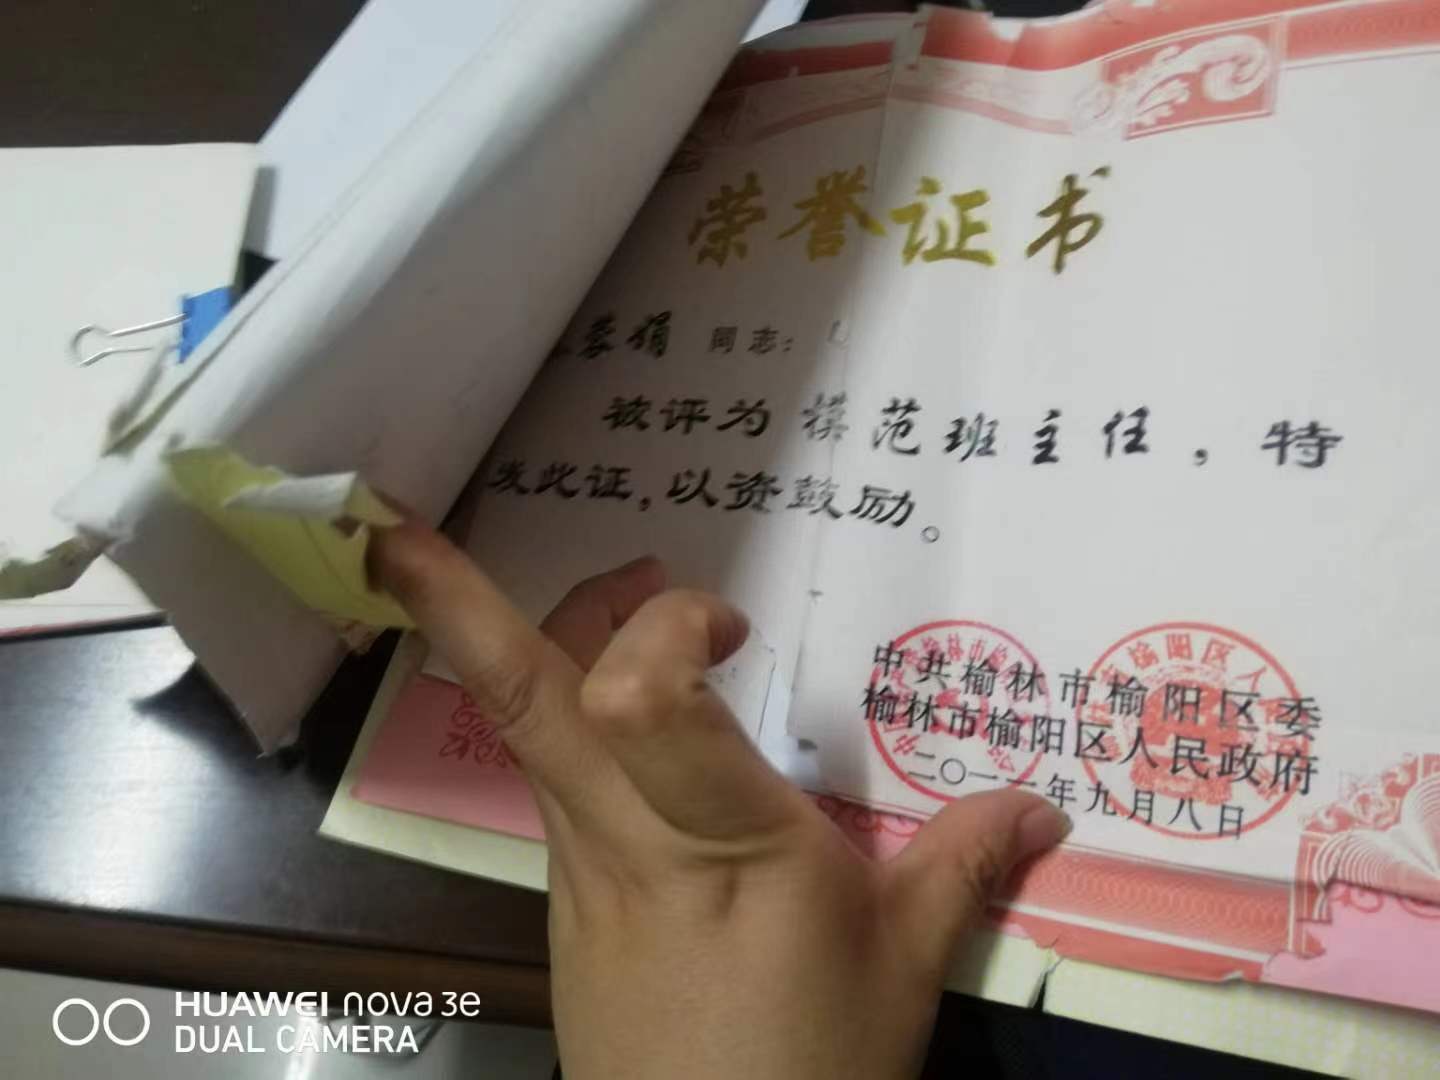 荣誉证书
蓉娟 同志：
被评为 模范班主任，特
发此证，以资鼓励。
中共榆林市榆阳区委
榆林市榆阳区人民政府
二〇一一年九月八日
HUAWEI nova 3e
DUAL CAMERA